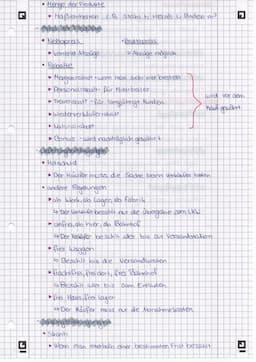 • Menge der Produkte
• Maßeinheiten z.B. Stück
• Nettopreis • Bruttopreis
• keine Abzüge • Abzüge möglich
• Rabatte
• Mengenrabatt - wenn man viel bestellt
• Personalrabatt - für Mitarbeiter
• Treuerabatt - für langjährige Kunden
• Wiederverkäuferrabatt
• Naturalrabatt
• Bonus - wird nachträglich gewährt
wird vor dem Kauf gewährt
• Holschuld
• Der Käufer muss die Sache beim Verkäufer holen
• andere Regelungen
• ab Werk, ab Lager, ab Fabrik
↳ Der Verkäufer bezahlt nur die Übergabe zum LKW
• unfrei, ab hier, ab Bahnhof
↳ Der Verkäufer bezahlt aber bis zur Versandstation
• frei Waggon
↳ Bezahlt bis die
• frachtfrei, frei dort, frei Bahnhof
↳ Bezahlt aber bis zum
• frei Haus, frei Lager
↳ Der Käufer muss nur die
• Skonto
• Wenn man innerhalb einer bestimmten Frist bezahlt